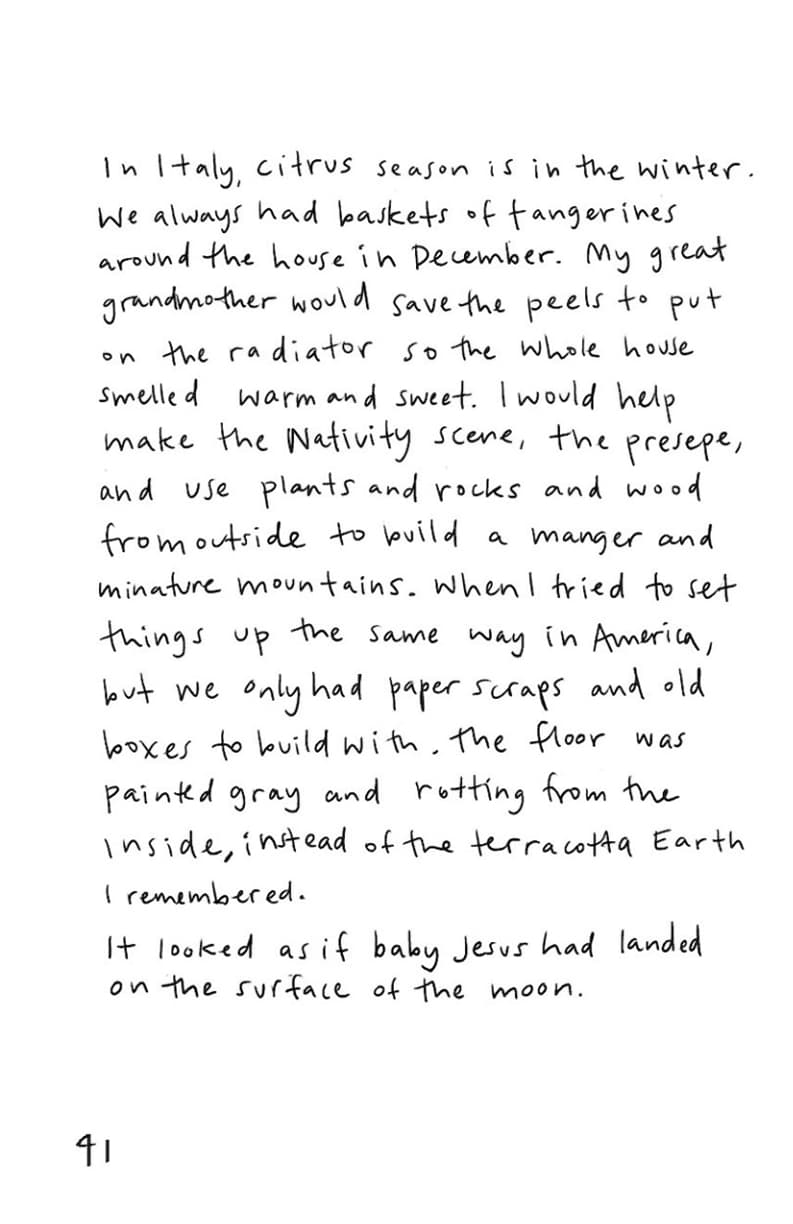 In Italy, citrus season is in the winter.
We always had baskets of tangerines
around the house in December. My great
grandmother would save the peels to put
on the radiator so the whole house
smelled warm and sweet. I would help
make the Nativity scene, the presepe,
and use plants and rocks and wood
from outside to build a manger and
minature mountains. When I tried to set
things up the same way in America,
but we only had paper scraps and old
boxes to build with. The floor was
painted gray and rotting from the
inside, instead of the terracotta Earth
I remembered.
It looked as if baby Jesus had landed
on the surface of the moon.
41